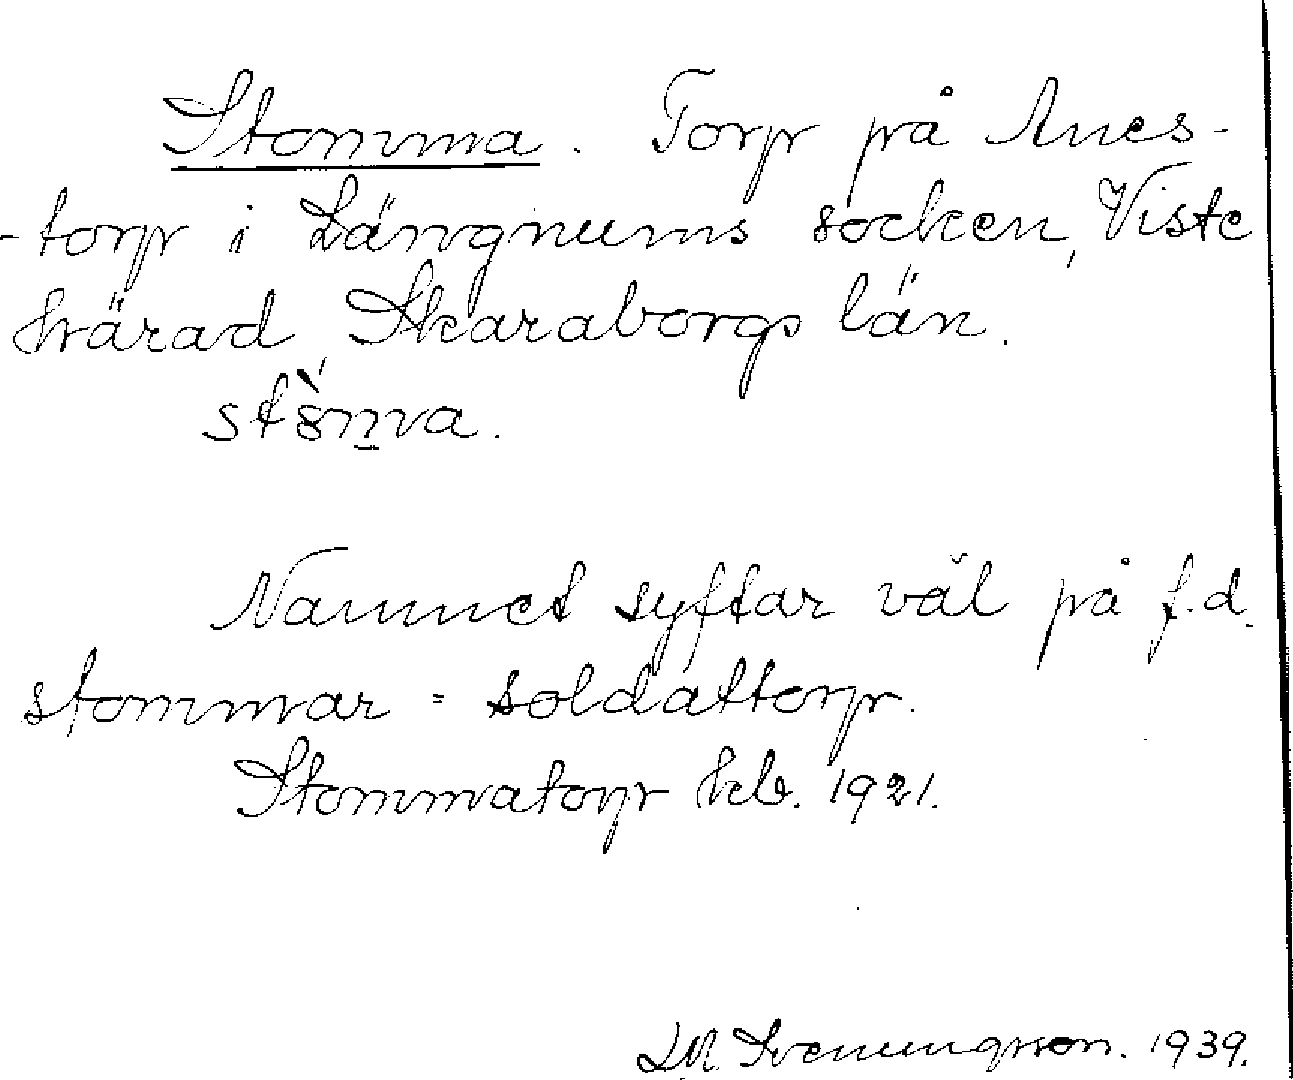 Stomma. Torp på Anes-
-torp i Längnums socken, Viste
härad, Skaraborgs län.
Namnet syftar väl på f.d.
stommar = soldattorp.
Stommatorp kb. 1921.
Svenungsson. 1939.